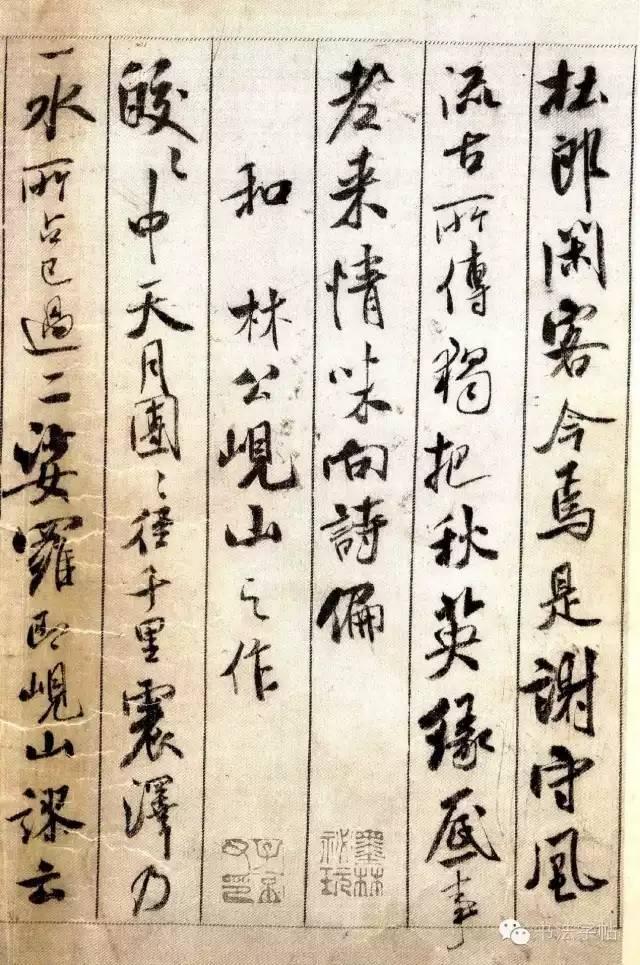 杜郎閑客今焉是謝守風
流古所傳獨把秋英緣底事
老来情味向詩偏
和林公峴山之作
皎〻中天月團〻徑千里震澤乃
一水所占已過二娑羅即峴山謬云
墨林祕玩
子京父印
书法字帖